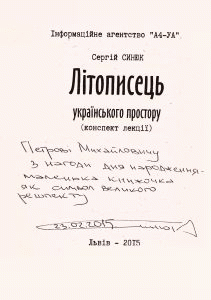 Інформаційне агентство "А4-УА"
Сергій СИНЮК
Літописець
українського простору
(конспект лекції)
Петрові Михайловичу
з нагоди дня народження -
маленька книжочка
як символ великого
решпекту
23.02.2015
Львів – 2015